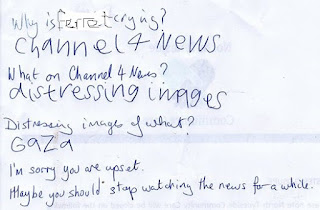 Why is ferret crying?
Channel 4 News
What on Channel 4 News?
distressing images
Distressing images of what?
GaZa
I'm sorry you are upset.
Maybe you should stop watching the news for a while.